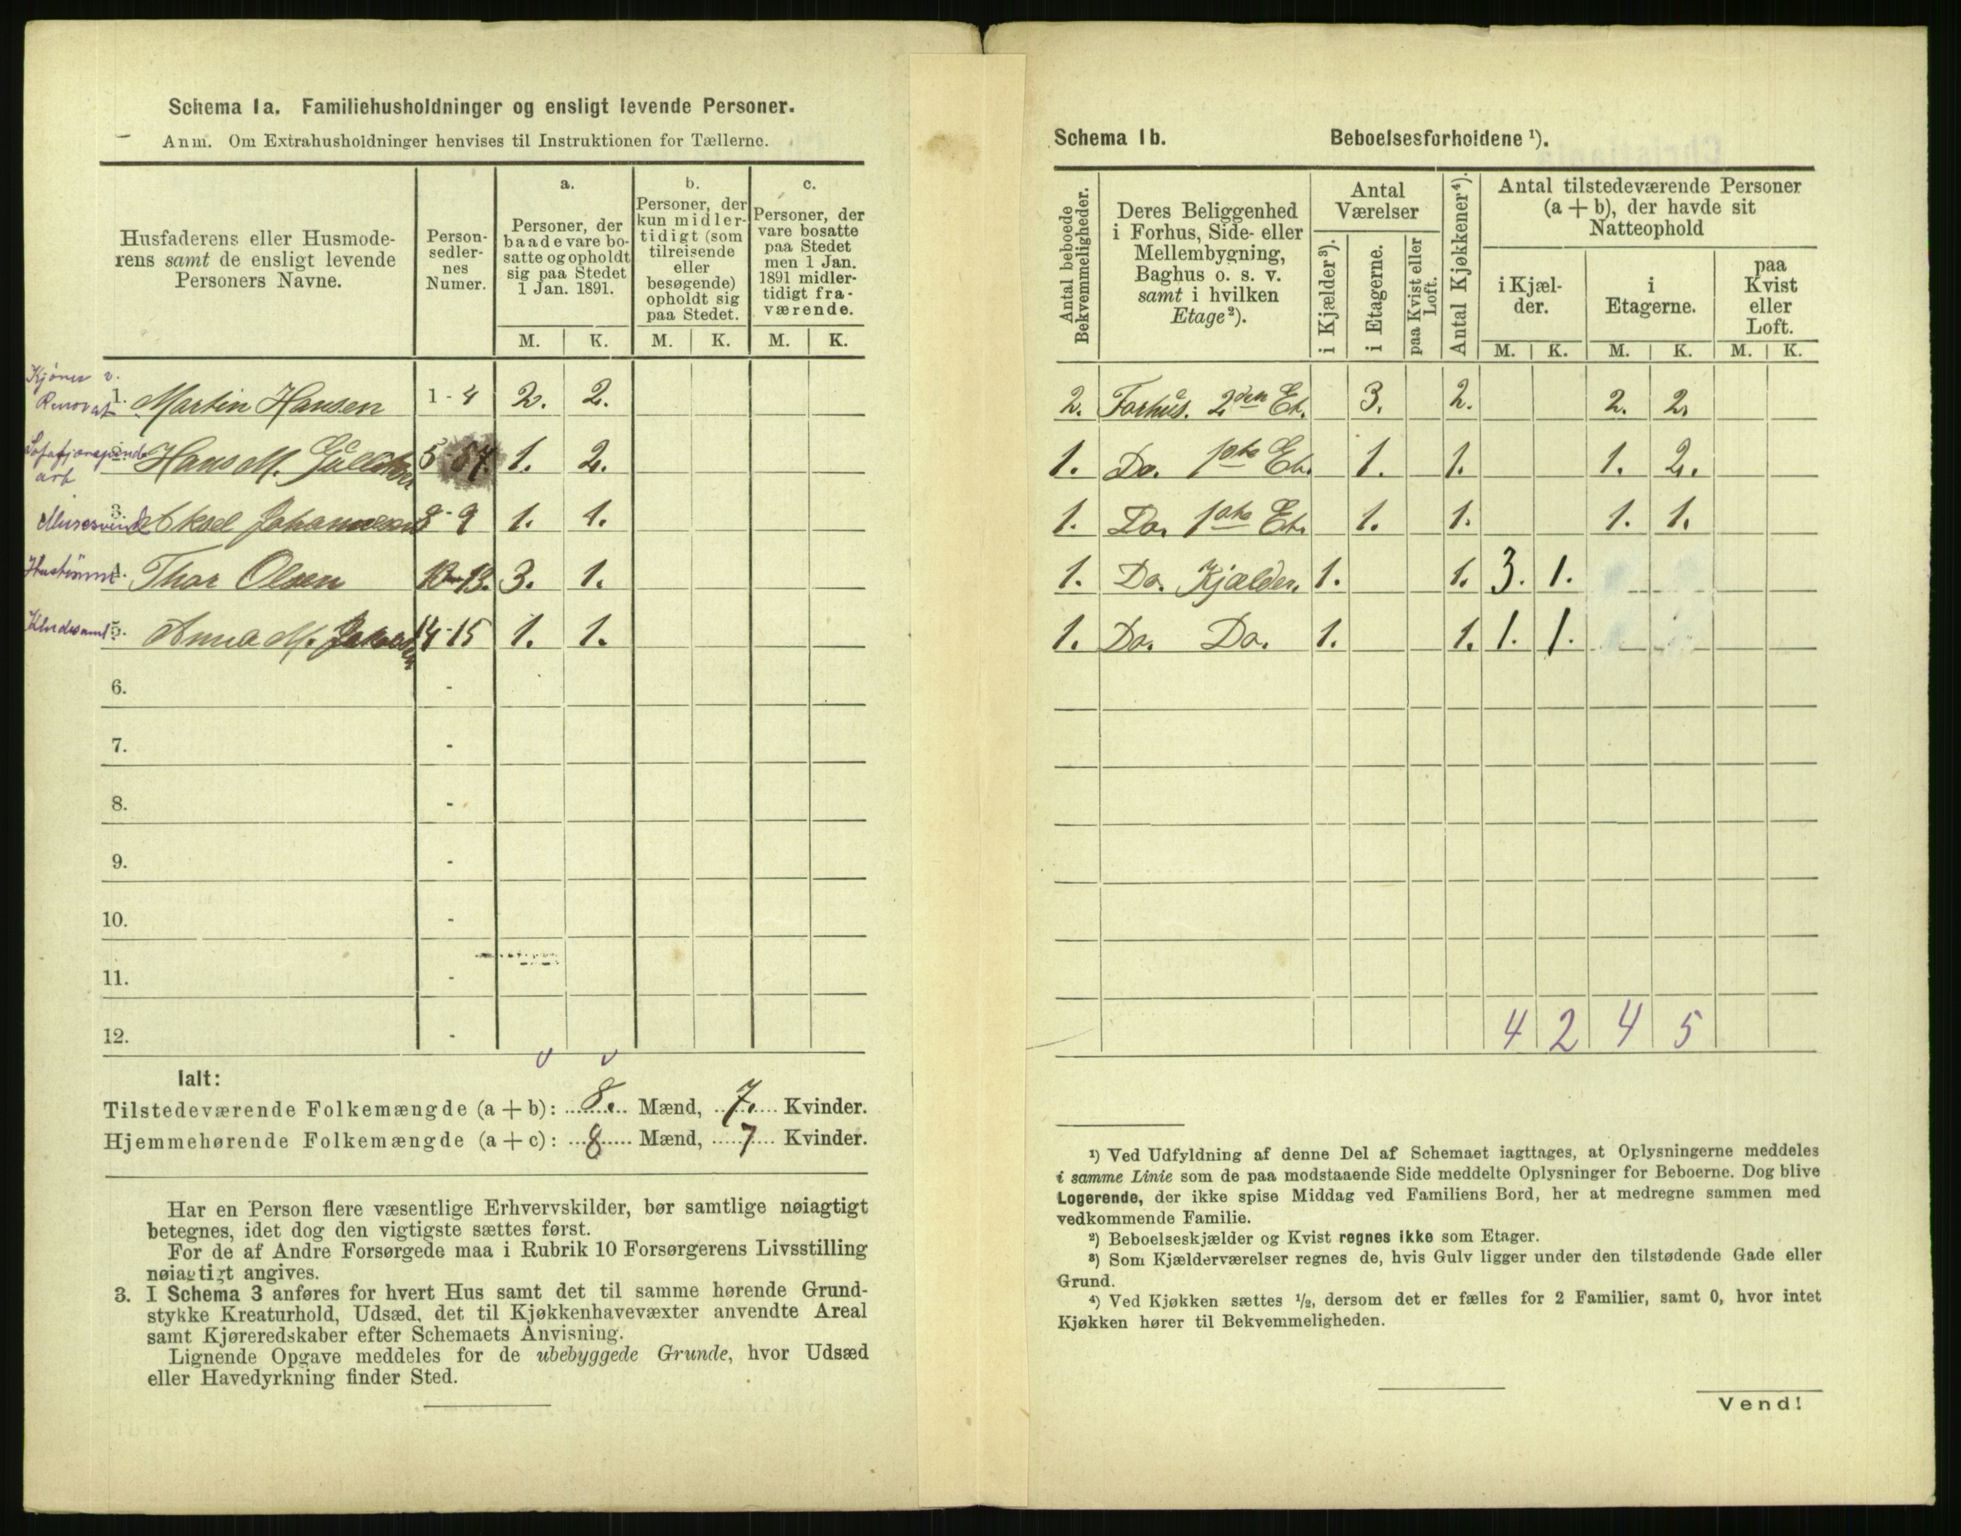 Schema 1a. Familiehusholdninger og ensligt levende Personer.
Anm. Om Extrahusholdninger henvises til Instruktionen for Tællerne.
Husfaderens eller Husmode-
rens samt de ensligt levende
Personers Navne.
Person-
sedler-
nes
Numer.
a.
Personer, der
baade vare bo-
satte og opholdt
sig paa Stedet
1 Jan. 1891.
b.
Personer, der
kun midler-
tidigt (som
tilreisende
eller
besøgende)
opholdt sig
paa Stedet.
c.
Personer, der
vare bosatte
paa Stedet
men 1 Jan.
1891 midler-
tidigt fra-
værende.
M. K. M. K. M. K.
1. Martin Hansen 1 - 4 2. 2.
2. Hans M. 5 - 7. 1. 2.
3. Aksel Johannesen 8 - 9 1. 1.
4. Thor Olsen 10 - 13. 3. 1.
5. Anna M. 14 - 15 1. 1.
6. -
7. -
8. -
9. -
10. -
11. -
12. -
Ialt:
Tilstedeværende Folkemængde (a + b): 8. Mænd, 7. Kvinder.
Hjemmehørende Folkemængde (a + c): 8 Mænd, 7 Kvinder.
Har en Person flere væsentlige Erhvervskilder, bør samtlige nøiagtigt
betegnes, idet dog den vigtigste sættes først.
For de af Andre Forsørgede maa i Rubrik 10 Forsørgerens Livsstilling
nøiagtigt angives.
3. I Schema 3 anføres for hvert Hus samt det til samme hørende Grund-
stykke Kreaturhold, Udsæd, det til Kjøkkenhavevæxter anvendte Areal
samt Kjøreredskaber efter Schemaets Anvisning.
Lignende Opgave meddeles for de ubebyggede Grunde, hvor Udsæd
eller Havedyrkning finder Sted.
Schema 1b. Beboelsesforholdene ¹).
Antal beboede
Bekvemmeligheder.
Deres Beliggenhed
i Forhus, Side- eller
Mellembygning,
Baghus o. s. v.
samt i hvilken
Etage²).
Antal
Værelser
i Kjælder³).
i Etagerne.
paa Kvist eller
Loft.
Antal Kjøkkener⁴).
Antal tilstedeværende Personer
(a + b), der havde sit
Natteophold
i Kjæl-
der.
i
Etagerne.
paa
Kvist
eller
Loft.
M. K. M. K. M. K.
2. Forhus. 2den Et. 3. 2. 2. 2.
1. Do. 1ste Et. 1. 1. 1. 2.
1. Do. 1ste Et. 1. 1. 1. 1.
1. Do. Kjælder. 1. 1. 3. 1.
1. Do. Do. 1. 1. 1. 1.
4 2 4 5
¹) Ved Udfyldning af denne Del af Schemaet iagttages, at Oplysningerne meddeles
i samme Linie som de paa modstaaende Side meddelte Oplysninger for Beboerne. Dog blive
Logerende, der ikke spise Middag ved Familiens Bord, her at medregne sammen med
vedkommende Familie.
²) Beboelseskjælder og Kvist regnes ikke som Etager.
³) Som Kjælderværelser regnes de, hvis Gulv ligger under den tilstødende Gade eller
Grund.
⁴) Ved Kjøkken sættes ½, dersom det er fælles for 2 Familier, samt 0, hvor intet
Kjøkken hører til Bekvemmeligheden.
Vend!